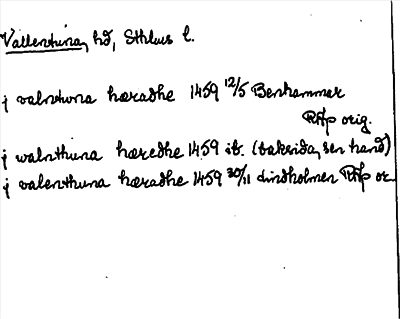 Vallentuna, hd, Sthlms l.
j valnthvna hæradhe 1459 12/5 Benhammar
RAp orig.
j walnthuna hæredhe 1459 ib. (baksida, sen hand)
j valenthuna hæradhe 1459 30/11 Lindholmen RAp or.